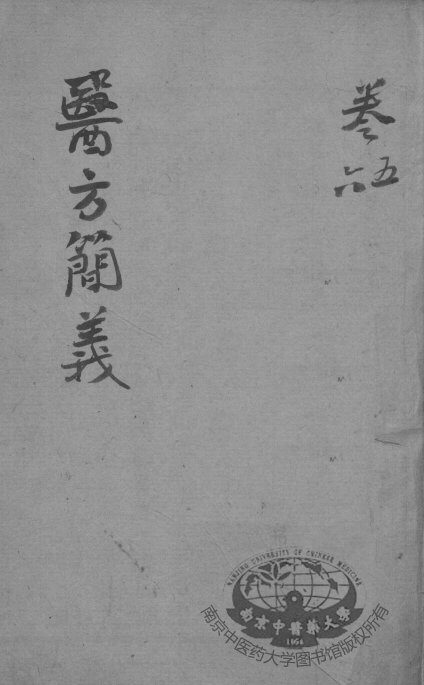 卷
五
六
醫方簡義
NANJING UNIVERSITY OF CHINESE MEDICINE
南京中醫藥大學
1954
南京中医药大学图书馆版权所有